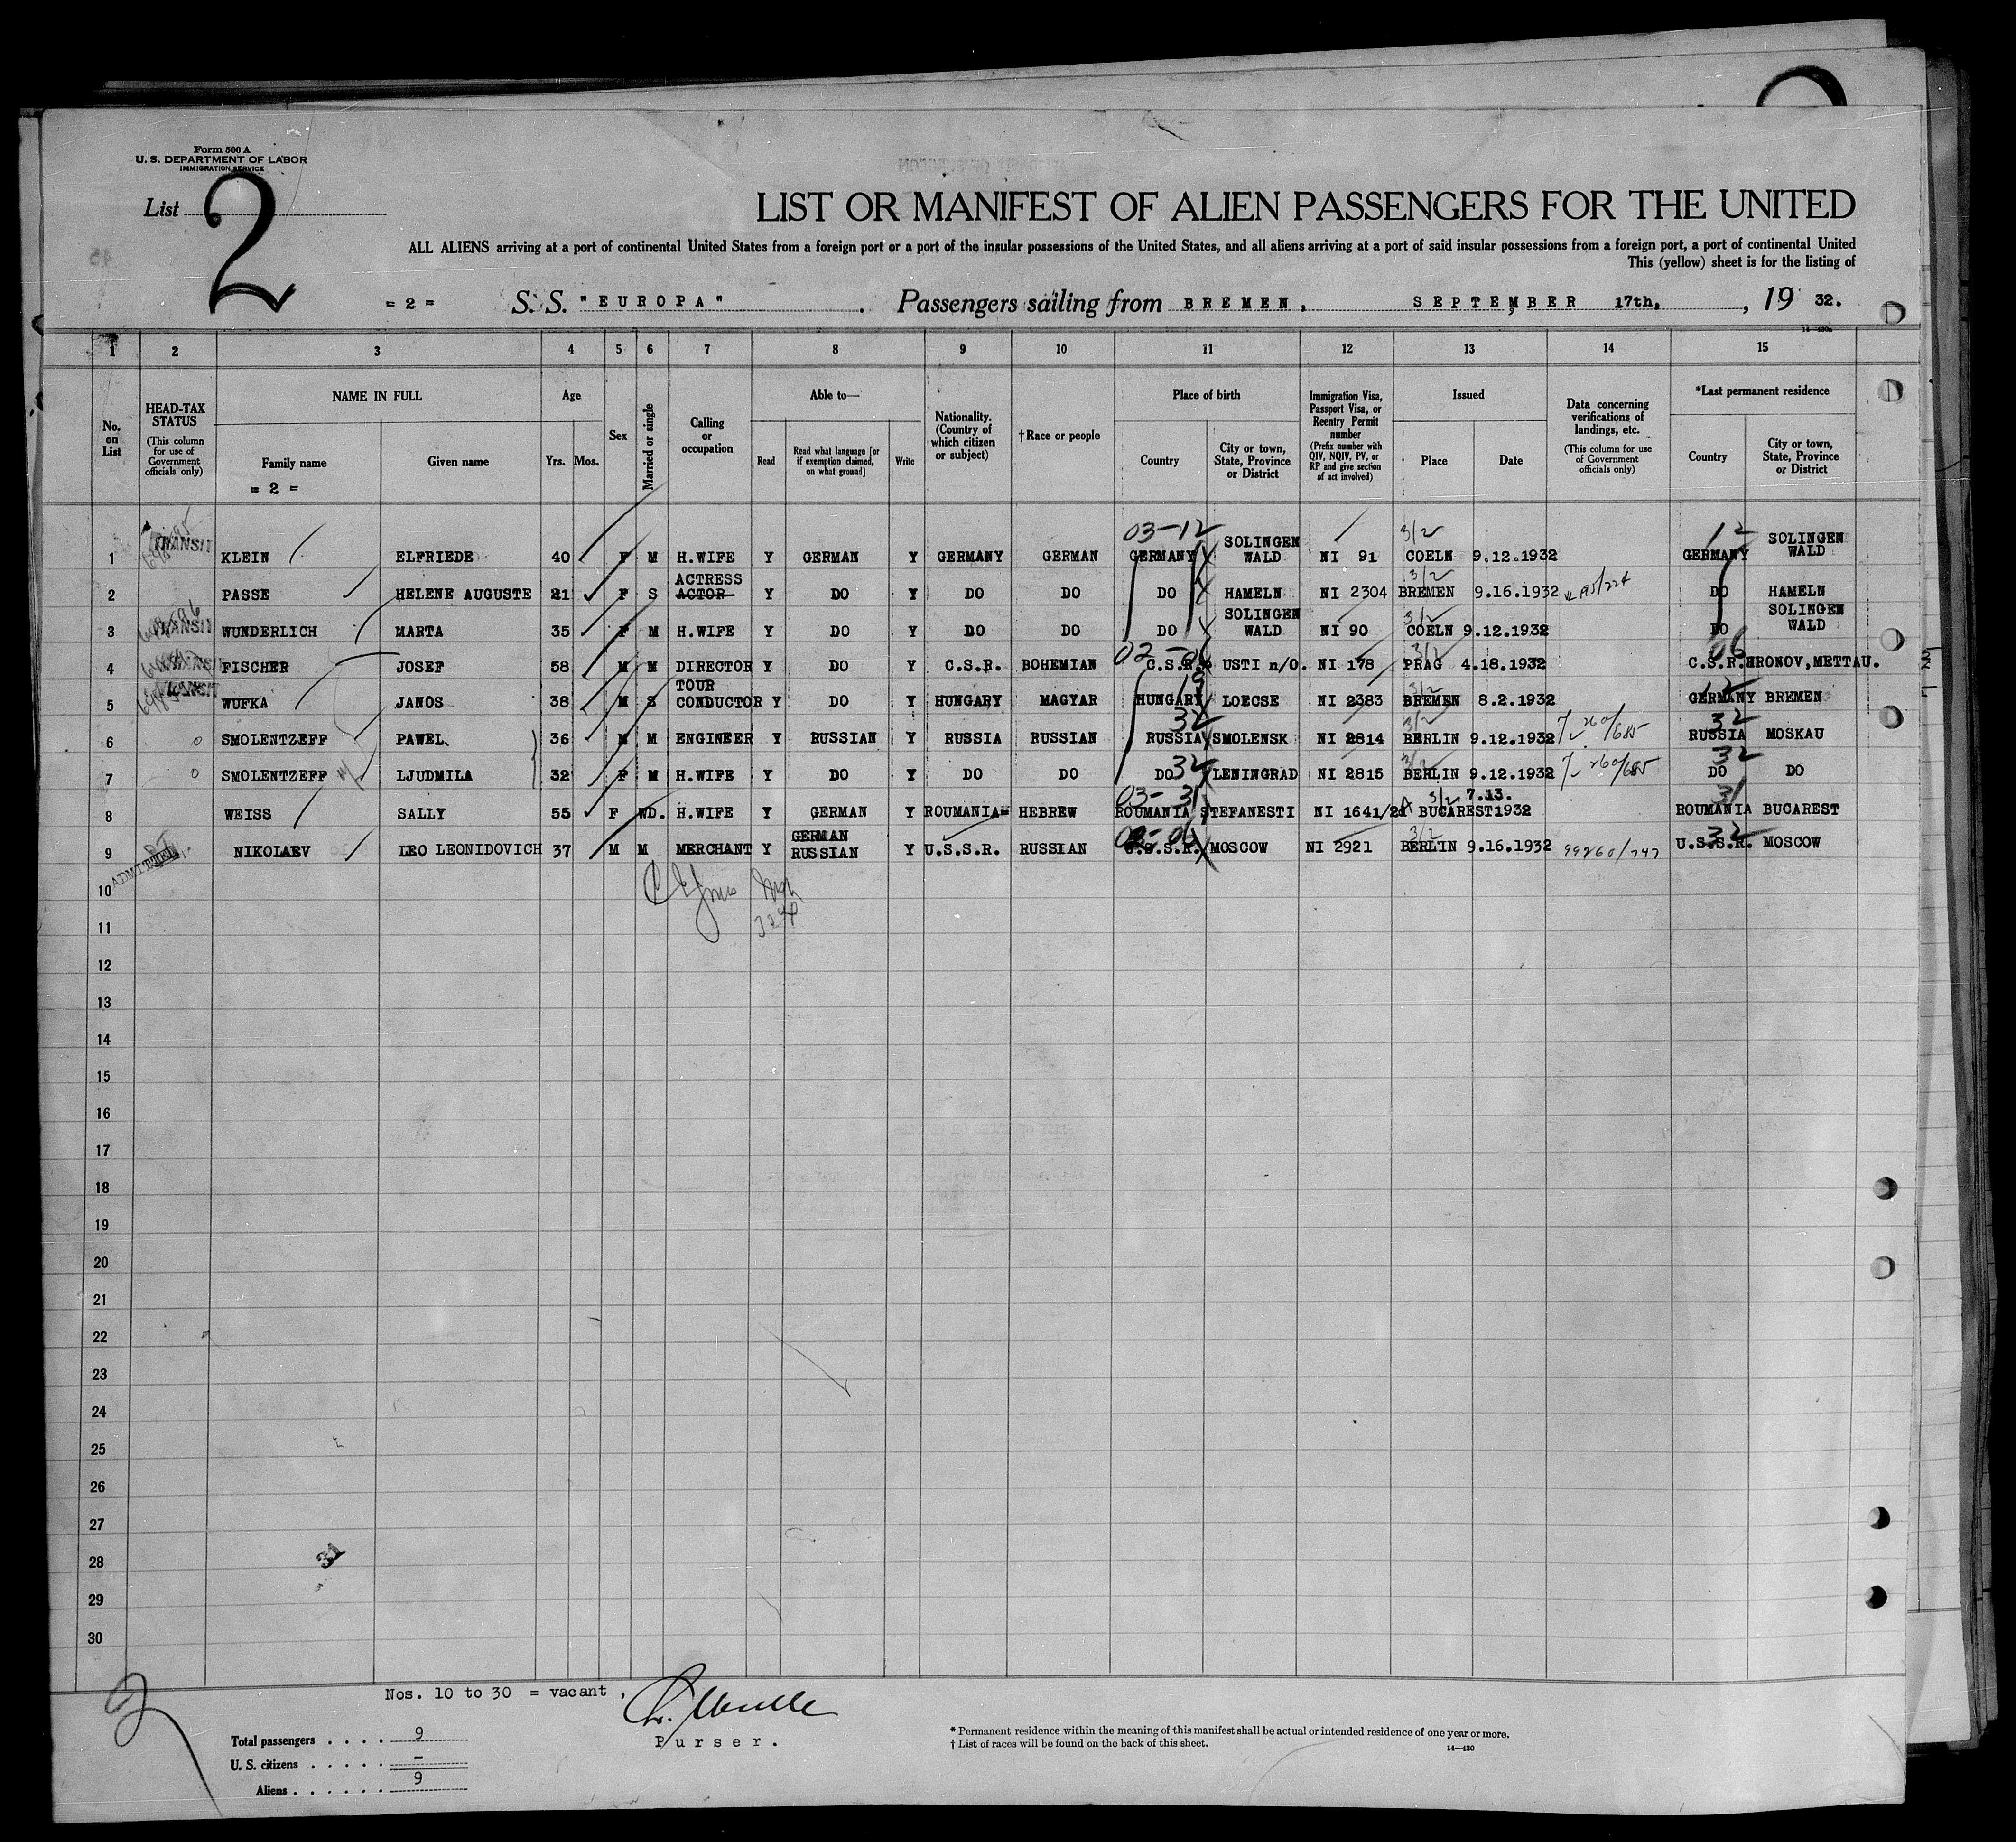 Form 500 A
U. S. DEPARTMENT OF LABOR
IMMIGRATION SERVICE
List 2
LIST OR MANIFEST OF ALIEN PASSENGERS FOR THE UNITED
ALL ALIENS arriving at a port of continental United States from a foreign port or a port of the insular possessions of the United States, and all aliens arriving at a port of said insular possessions from a foreign port, a port of continental United
This (yellow) sheet is for the listing of
= 2 = S. S. "EUROPA" . Passengers sailing from BREMEN, SEPTEMBER 17th, , 19 32.
14—430a
1 2 3 4 5 6 7 8 9 10 11 12 13 14 15
No. on List
HEAD-TAX STATUS
(This column for use of Government officials only)
NAME IN FULL
Family name
= 2 =
Given name
Age
Yrs. Mos.
Sex
Married or single
Calling or occupation
Able to—
Read
Read what language [or if exemption claimed, on what ground]
Write
Nationality. (Country of which citizen or subject)
†Race or people
Place of birth
Country
City or town, State, Province or District
Immigration Visa, Passport Visa, or Reentry Permit number
(Prefix number with QIV, NQIV, PV, or RP and give section of act involved)
Issued
Place
Date
Data concerning verifications of landings, etc.
(This column for use of Government officials only)
*Last permanent residence
Country
City or town, State, Province or District
1 TRANSIT KLEIN ELFRIEDE 40 F M H.WIFE Y GERMAN Y GERMANY GERMAN 03-12 GERMANY SOLINGEN WALD NI 91 3/2 COELN 9.12.1932 12 GERMANY SOLINGEN WALD
2 PASSE HELENE AUGUSTE 21 F S ACTRESS ACTOR Y DO Y DO DO DO HAMELN NI 2304 3/2 BREMEN 9.16.1932 DO HAMELN
3 TRANSIT WUNDERLICH MARTA 35 F M H.WIFE Y DO Y DO DO DO SOLINGEN WALD NI 90 3/2 COELN 9.12.1932 DO SOLINGEN WALD
4 FISCHER JOSEF 58 M M DIRECTOR Y DO Y C.S.R. BOHEMIAN C.S.R. USTI n/O. NI 178 3/2 PRAG 4.18.1932 06 C.S.R. HRONOV,METTAU.
5 WUFKA JANOS 38 M S TOUR CONDUCTOR Y DO Y HUNGARY MAGYAR HUNGARY LOECSE NI 2383 3/2 BREMEN 8.2.1932 12 GERMANY BREMEN
6 0 SMOLENTZEFF PAWEL 36 M M ENGINEER Y RUSSIAN Y RUSSIA RUSSIAN 32 RUSSIA SMOLENSK NI 2814 3/2 BERLIN 9.12.1932 260/685 32 RUSSIA MOSKAU
7 0 SMOLENTZEFF LJUDMILA 32 F M H.WIFE Y DO Y DO DO 32 DO LENINGRAD NI 2815 3/2 BERLIN 9.12.1932 260/685 32 DO DO
8 WEISS SALLY 55 F WD. H.WIFE Y GERMAN Y ROUMANIA= HEBREW 03-31 ROUMANIA STEFANESTI NI 1641/21 3/2 BUCAREST 7.13. 1932 31 ROUMANIA BUCAREST
9 NIKOLAEV LEO LEONIDOVICH 37 M M MERCHANT Y GERMAN RUSSIAN Y U.S.S.R. RUSSIAN 06 U.S.S.R. MOSCOW NI 2921 3/2 BERLIN 9.16.1932 99260/747 32 U.S.S.R. MOSCOW
ADMITTED
10
11
12
13
14
15
16
17
18
19
20
21
22
23
24
25
26
27
28
31
29
30
2
Nos. 10 to 30 = vacant,
Purser.
Total passengers . . . . 9
U. S. citizens . . . . . -
Aliens . . . . . . 9
* Permanent residence within the meaning of this manifest shall be actual or intended residence of one year or more.
† List of races will be found on the back of this sheet.
14—430